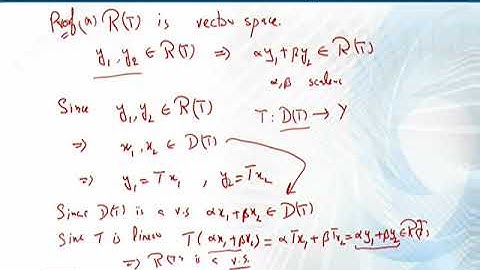 Proof (a) R(T) is vector space.
y₁, y₂ ∈ R(T) ⇒ αy₁ + βy₂ ∈ R(T)
α, β scalars
Since y₁, y₂ ∈ R(T) T : D(T) → Y
⇒ x₁, x₂ ∈ D(T)
⇒ y₁ = Tx₁ , y₂ = Tx₂
Since D(T) is a v.s αx₁ + βx₂ ∈ D(T)
Since T is linear T(αx₁ + βx₂) = αTx₁ + βTx₂ = αy₁ + βy₂ ∈ R(T)
⇒ R(T) is a v.s.